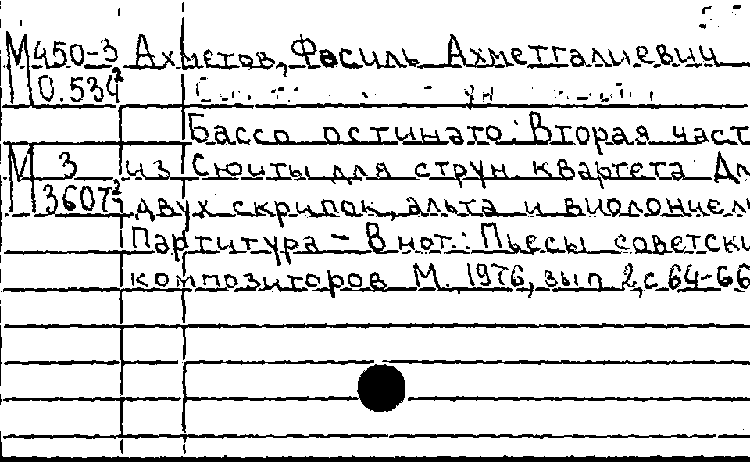 М450-3 Ахметов, Фасиль Ахметгалиевич
10.534²
Бассо остинато: Вторая част
М 3 из Сюиты для струн. квартета Дл
13607² двух скрипок, альта и виолончел
Партитура – В нот.: Пьесы советски
композиторов М. 1976, вып 2, с 64-66